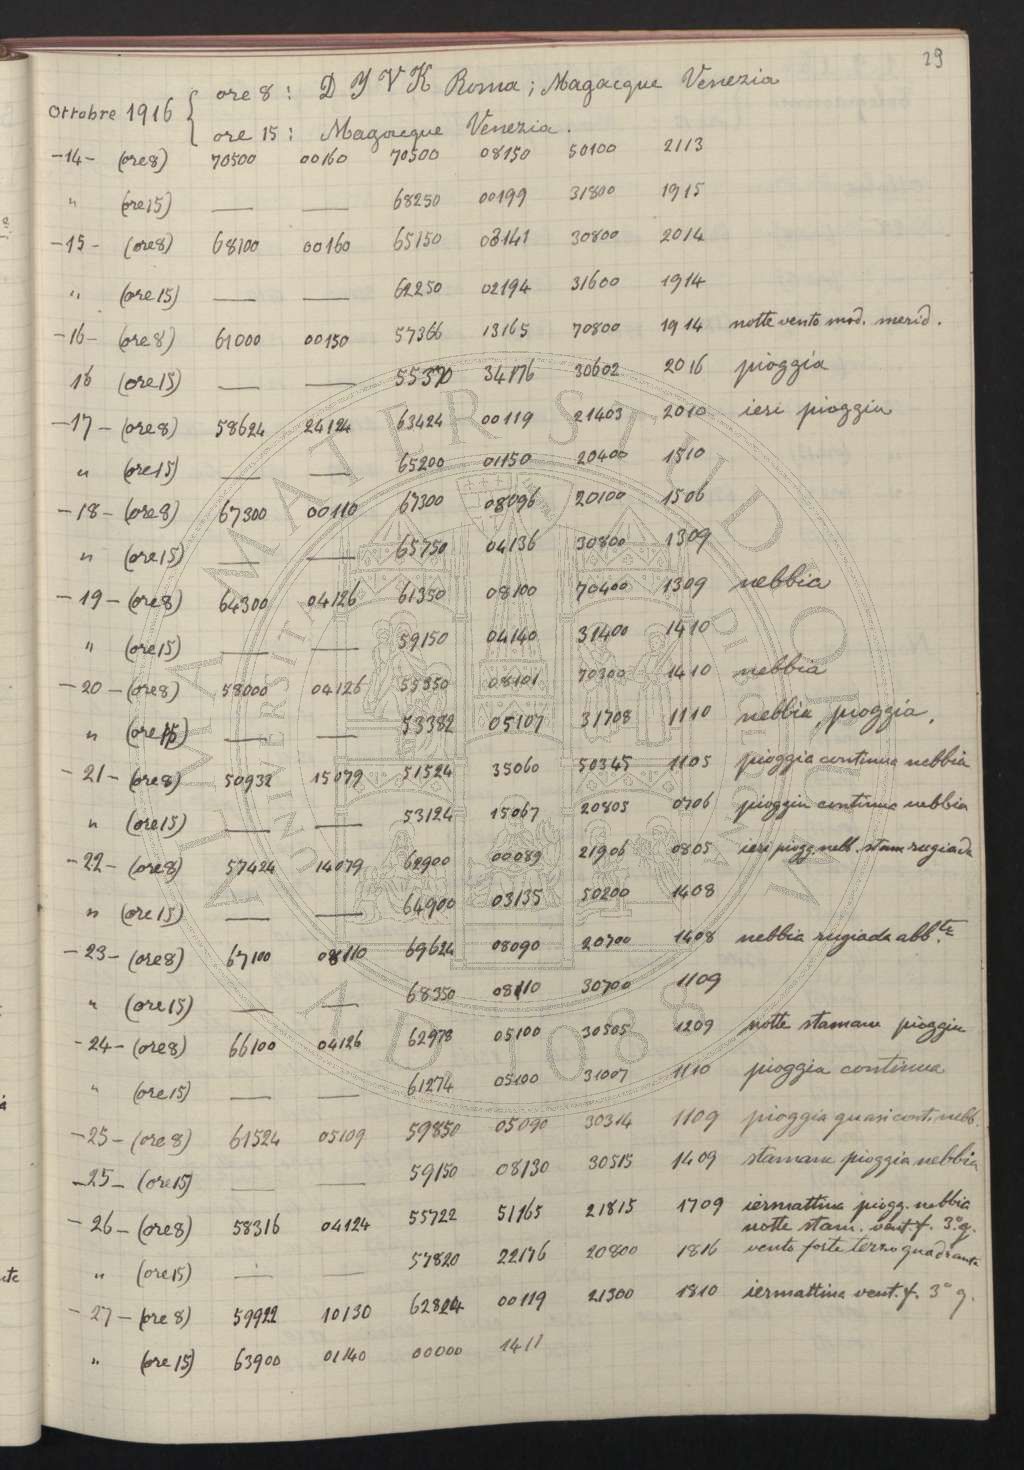 29
Ottobre 1916 { ore 8 : D Y V K Roma ; Magacque Venezia
ore 15 : Magacque Venezia .
-14- (ore8) 70500 00160 70500 08150 50100 2113
" (ore15) — — 68250 00199 31800 1915
-15- (ore8) 68100 00160 65150 03141 30800 2014
" (ore15) — — 62250 02194 31600 1914
-16- (ore8) 61000 00150 57366 13165 70800 1914 notte vento mod. merid.
16 (ore15) — — 55370 34176 30602 2016 pioggia
-17- (ore8) 58624 24124 63424 00119 21403 2010 ieri pioggia
" (ore15) — — 65200 01150 20400 1510
-18- (ore8) 67300 00110 67300 08096 20100 1506
" (ore15) — — 65750 04136 30800 1309
-19- (ore8) 64300 04126 61350 08100 70400 1309 nebbia
" (ore15) — — 59150 04140 31400 1410
-20- (ore8) 58000 04126 55350 08101 70300 1410 nebbia
" (ore15) — — 53382 05107 31708 1110 nebbia, pioggia.
-21- (ore8) 50932 15079 51524 35060 50345 1105 pioggia continua nebbia
" (ore15) — — 53124 15067 20805 0706 pioggia continua nebbia
-22- (ore8) 57424 14079 62900 00089 21906 0805 ieri piogg. nebb. stam. rugiada
" (ore15) — — 64900 03135 50200 1408
-23- (ore8) 67100 08110 69624 08090 20700 1408 nebbia rugiada abb.te
" (ore15) — — 68350 08110 30700 1109
-24- (ore8) 66100 04126 62978 05100 30505 1209 notte stamane pioggia
" (ore15) — — 61274 05100 31007 1110 pioggia continua
-25- (ore8) 61524 05109 59850 05090 30314 1109 pioggia quasi cont. nebb.
-25- (ore15) — — 59150 08130 30515 1409 stamane pioggia nebbia
-26- (ore8) 58316 04124 55722 51165 21815 1709 iermattina piogg. nebbia
notte stam. vent. f. 3° q.
" (ore15) — — 57820 22176 20800 1816 vento forte terzo quadrante
-27- (ore8) 59922 10130 62824 00119 21300 1810 iermattina vent. f. 3° q.
" (ore15) 63900 01140 00000 1411
ALMA MATER STUDIORUM
UNIVERSITA
A D 1088